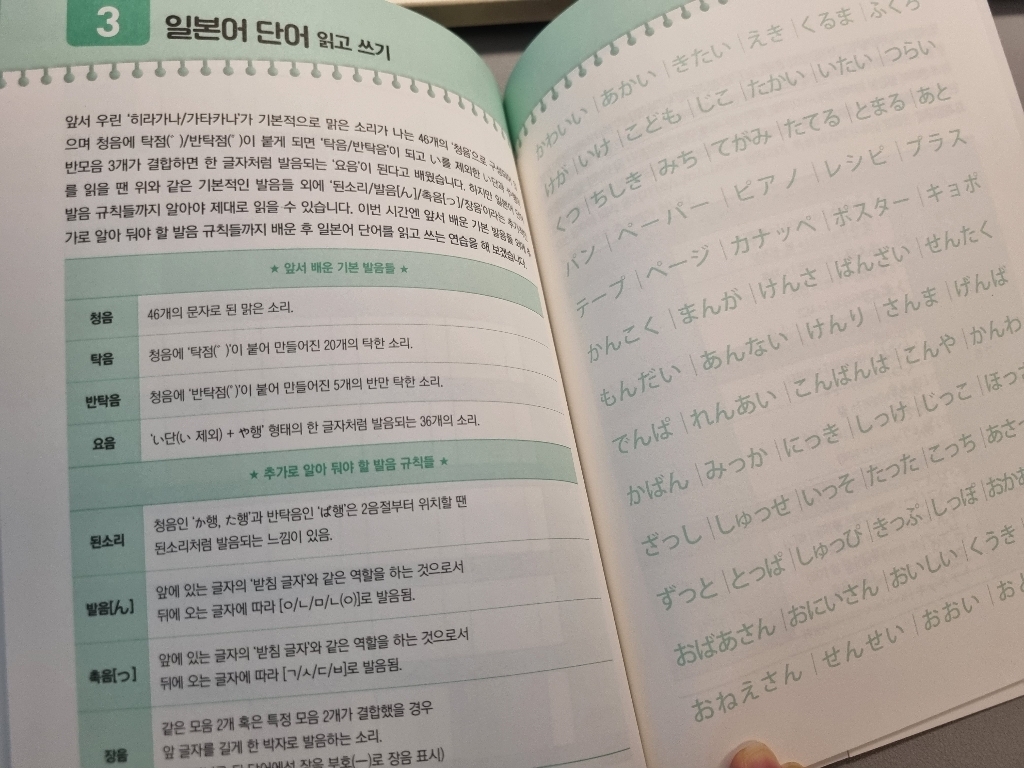 3 일본어 단어 읽고 쓰기
앞서 우린 '히라가나/가타카나'가 기본적으로 맑은 소리가 나는 46개의 '청음'으로
으며 청음에 탁점(゛)/반탁점(゜)이 붙게 되면 '탁음/반탁음'이 되고 い를 제외한 い단과
반모음 3개가 결합하면 한 글자처럼 발음되는 '요음'이 된다고 배웠습니다. 하지만 일본어 단어
를 읽을 땐 위와 같은 기본적인 발음들 외에 '된소리/발음[ん]/촉음[っ]/장음'이라는
발음 규칙들까지 알아야 제대로 읽을 수 있습니다. 이번 시간엔 앞서 배운 기본 발음들 외에
가로 알아 둬야 할 발음 규칙들까지 배운 후 일본어 단어를 읽고 쓰는 연습을 해 보겠습니다.
★ 앞서 배운 기본 발음들 ★
청음 46개의 문자로 된 맑은 소리.
탁음 청음에 '탁점(゛)'이 붙어 만들어진 20개의 탁한 소리.
반탁음 청음에 '반탁점(゜)'이 붙어 만들어진 5개의 반만 탁한 소리.
요음 'い단(い 제외) + や행' 형태의 한 글자처럼 발음되는 36개의 소리.
★ 추가로 알아 둬야 할 발음 규칙들 ★
된소리 청음인 'か행, た행'과 반탁음인 'ぱ행'은 2음절부터 위치할 땐
된소리처럼 발음되는 느낌이 있음.
발음[ん] 앞에 있는 글자의 '받침 글자'와 같은 역할을 하는 것으로서
뒤에 오는 글자에 따라 [ㅇ/ㄴ/ㅁ/ㄴ(ㅇ)]로 발음됨.
촉음[っ] 앞에 있는 글자의 '받침 글자'와 같은 역할을 하는 것으로서
뒤에 오는 글자에 따라 [ㄱ/ㅅ/ㄷ/ㅂ]로 발음됨.
장음 같은 모음 2개 혹은 특정 모음 2개가 결합했을 경우
앞 글자를 길게 한 박자로 발음하는 소리.
된 단어에선 장음 부호(ー)로 장음 표시)
かわいい | あかい | きたい | えき | くるま | ふくろ
けが | いけ | こども | じこ | たかい | いたい | つらい
くつ | ちしき | みち | てがみ | たてる | とまる | あと
パン | ペーパー | ピアノ | レシピ | プラス
テープ | ページ | カナッペ | ポスター | キョポ
かんこく | まんが | けんさ | ばんざい | せんたく
もんだい | あんない | けんり | さんま | げんば
でんぱ | れんあい | こんばんは | こんや | かんわ
かばん | みっか | にっき | しっけ | じっこ | ほっ
ざっし | しゅっせ | いっそ | たった | こっち | あさっ
ずっと | とっぱ | しゅっぴ | きっぷ | しっぽ | おかあ
おばあさん | おにいさん | おいしい | くうき
おねえさん | せんせい | おおい | おと